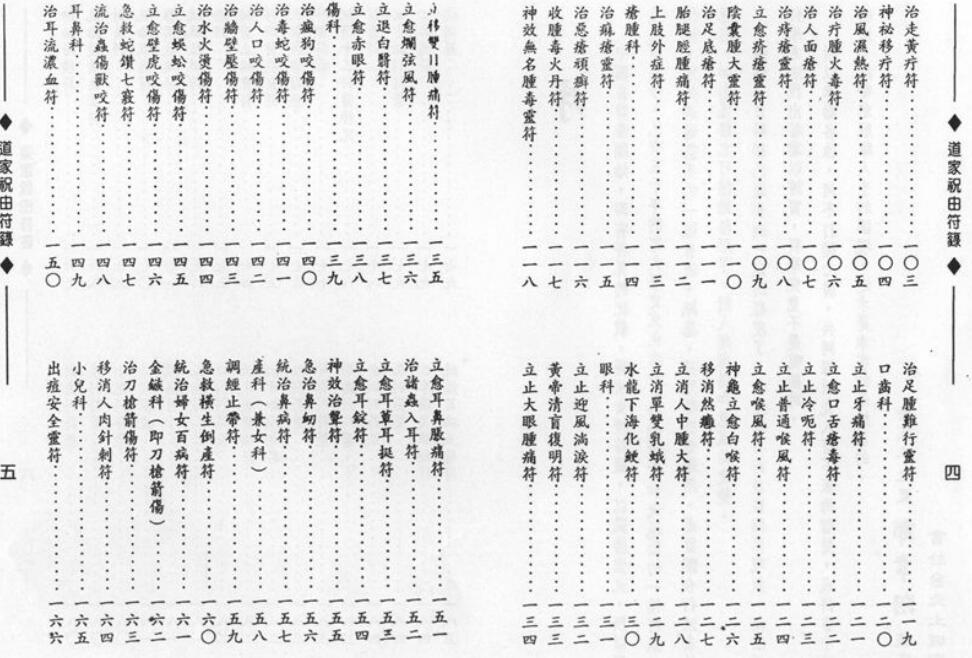 ◆道家祝由符籙◆
四
治走黃疔符……一〇三
神祕移疔符……一〇四
治風濕熱符……一〇五
治疔腫火毒符……一〇六
治人面瘡符……一〇七
治痔瘡靈符……一〇八
立愈疥瘡靈符……一〇九
陰囊腫大靈符……一一〇
治足底瘡符……一一一
胎腿脛腫痛符……一一二
上肢外症符……一一三
瘡腫科……一一四
治痳瘡靈符……一一五
治惡瘡頑癬符……一一六
收腫毒火丹符……一一七
神效無名腫毒靈符……一一八
治足腫難行靈符……一一九
口齒科……一二〇
立止牙痛符……一二一
立愈口舌瘡毒符……一二二
立止冷呃符……一二三
立止普通喉風符……一二四
立愈喉風符……一二五
神龜立愈白喉符……一二六
移消然符……一二七
立消人中腫大符……一二八
立消單雙乳蛾符……一二九
水龍下海化鯁符……一三〇
眼科……一三一
立止迎風淌淚符……一三二
黃啼清盲復明符……一三三
立止大眼腫痛符……一三四
◆道家祝由符籙◆
五
移雙目腫痛符……一三五
立愈爛弦風符……一三六
立退白翳符……一三七
立愈赤眼符……一三八
傷科……一三九
治瘋狗咬傷符……一四〇
治毒蛇咬傷符……一四一
治人口咬傷符……一四二
治牆壁壓傷符……一四三
治水火燙傷符……一四四
立愈蜈蚣咬傷符……一四五
立愈壁虎咬傷符……一四六
急救蛇鑽七竅符……一四七
流治蟲傷獸咬符……一四八
耳鼻科……一四九
治耳流濃血符……一五〇
立愈耳鼻脹痛符……一五一
治諸蟲入耳符……一五二
立愈耳蕈耳挺符……一五三
立愈耳錠符……一五四
神效治聾符……一五五
急治鼻衂符……一五六
統治鼻病符……一五七
產科（兼女科）……一五八
調經止帶符……一五九
急救橫生倒產符……一六〇
統治婦女百病符……一六一
金鏃科（即刀槍箭傷）……一六二
治刀槍箭傷符……一六三
移消人肉針刺符……一六四
小兒科……一六五
出痘安全靈符……一六六